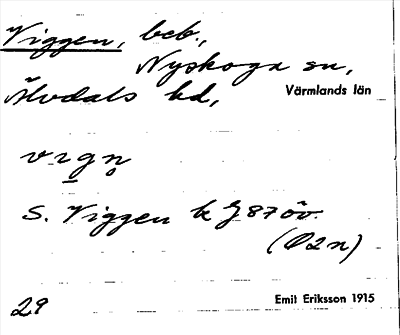 Viggen, beb.,
Nyskoga sn,
Älvdals hd, Värmlands län
vıgn̥
S. Viggen k J 87 öv.
(Ö2n)
29 Emil Eriksson 1915